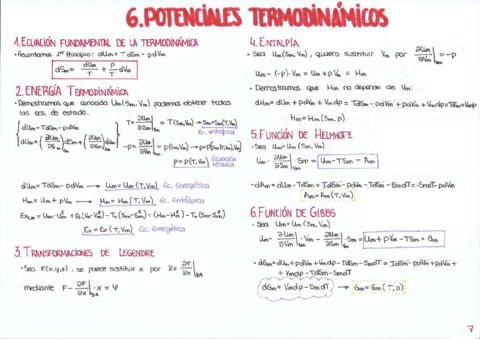 6. POTENCIALES TERMODINÁMICOS
1. ECUACIÓN FUNDAMENTAL DE LA TERMODINÁMICA
• Recordamos 1er Principio: dUm = TdSm - pdVm
dSm = dUm/T + p/T dVm
2. ENERGÍA TERMODINÁMICA
• Demostramos que conocida Um(Sm,Vm) podemos obtener todas
las ecs. de estado.
dUm = TdSm - pdVm
dUm = (∂Um/∂Sm) dSm + (∂Um/∂Vm) dVm
T = ∂Um/∂Sm|Vm = T(Sm,Vm) → Sm = Sm(T,Vm)
Ec. entrópica
-p = ∂Um/∂Vm|Sm = p(Sm,Vm) → p = p(Sm(T,Vm),Vm)
p = p(T,Vm) Ecuación térmica
dUm = TdSm - pdVm → Um = Um(T,Vm) Ec. Energética
Hm = Um + pVm → Hm = Hm(T,Vm) Ec. Entálpica
Ex = Ex(T,Vm) Ec. Exergética
3. TRANSFORMACIONES DE LEGENDRE
• Sea F(x,y,z), se puede sustituir x por X = ∂F/∂x|y,z
mediante F - ∂F/∂x|y,z · x = φ
4. ENTALPÍA
• Sea Um(Sm,Vm), quiero sustituir Vm por ∂Um/∂Vm|Sm = -p
Um - (-p)·Vm = Um + pVm = Hm
• Demostramos que Hm no depende de Vm:
dHm = dUm + pdVm + Vmdp = TdSm - pdVm + pdVm + Vmdp = TdSm + Vmdp
Hm = Hm(Sm,p)
5. FUNCIÓN DE HELMHOTZ
• Sea Um = Um(Sm,Vm)
Um - ∂Um/∂Sm|Vm · Sm = Um - TSm = Am
• dAm = dUm - TdSm - SmdT = TdSm - pdVm - TdSm - SmdT = -SmdT - pdVm
Am = Am(T,Vm)
6. FUNCIÓN DE GIBBS
• Sea Um = Um(Sm,Vm)
Um - ∂Um/∂Vm|Sm · Vm - ∂Um/∂Sm|Vm · Sm = Um + pVm - TSm = Gm
• dGm = dUm + pdVm + Vmdp - TdSm - SmdT = TdSm - pdVm + pdVm +
+ Vmdp - TdSm - SmdT
dGm = Vmdp - SmdT → Gm = Gm(T,p)
7